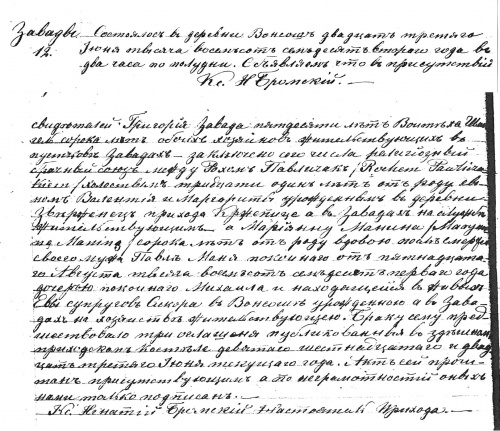 Завады
12.
Состоялось въ деревни Вонсошъ двадцать третяго
Іюня тысяча восемьсотъ семдесятъ второго года въ
два часа по полудни. Объявляемъ что въ присутствіи
Кс. И Громскій.
свидѣтелей Григорія Завада пятдесяти лѣтъ Войтѣха
сорока лѣтъ обоихъ хозяйковъ жительствующихъ въ
Завадахъ заключено сего числа религіозный
брачный союзъ между Рохомъ Павличакъ (Rochem
холостымъ тридцати одинъ лѣтъ отъ роду сы-
номъ Валентія и Маргариты урожденнымъ въ деревни
прихода а въ Завадахъ на службѣ
жительствующимъ а Маріянну Манина
сорока лѣтъ отъ роду вдовою после смерти
своего мужа Павла Маня покойнаго отъ пятнадцата-
го Августа тысяча восемьсотъ семдесятъ первого года
дочерю покойнаго Михаила и находящейся въ живыхъ
Евы супруговъ Сикора въ Вонсошѣ урожденною а въ Зава-
дахъ на хозяйствѣ жительствующею. Браку сему пред-
шествовало три оглашеня публикованыя въ здѣшнемъ
приходскомъ костелѣ девятаго шестнадцатаго и двад-
цать третяго Іюня текущаго года. Актъ сей прочи-
танъ присутствующимъ а по неграмотности оныхъ
нами только подписанъ.
Кс. Игнатій Громскій Настоятель Прихода.